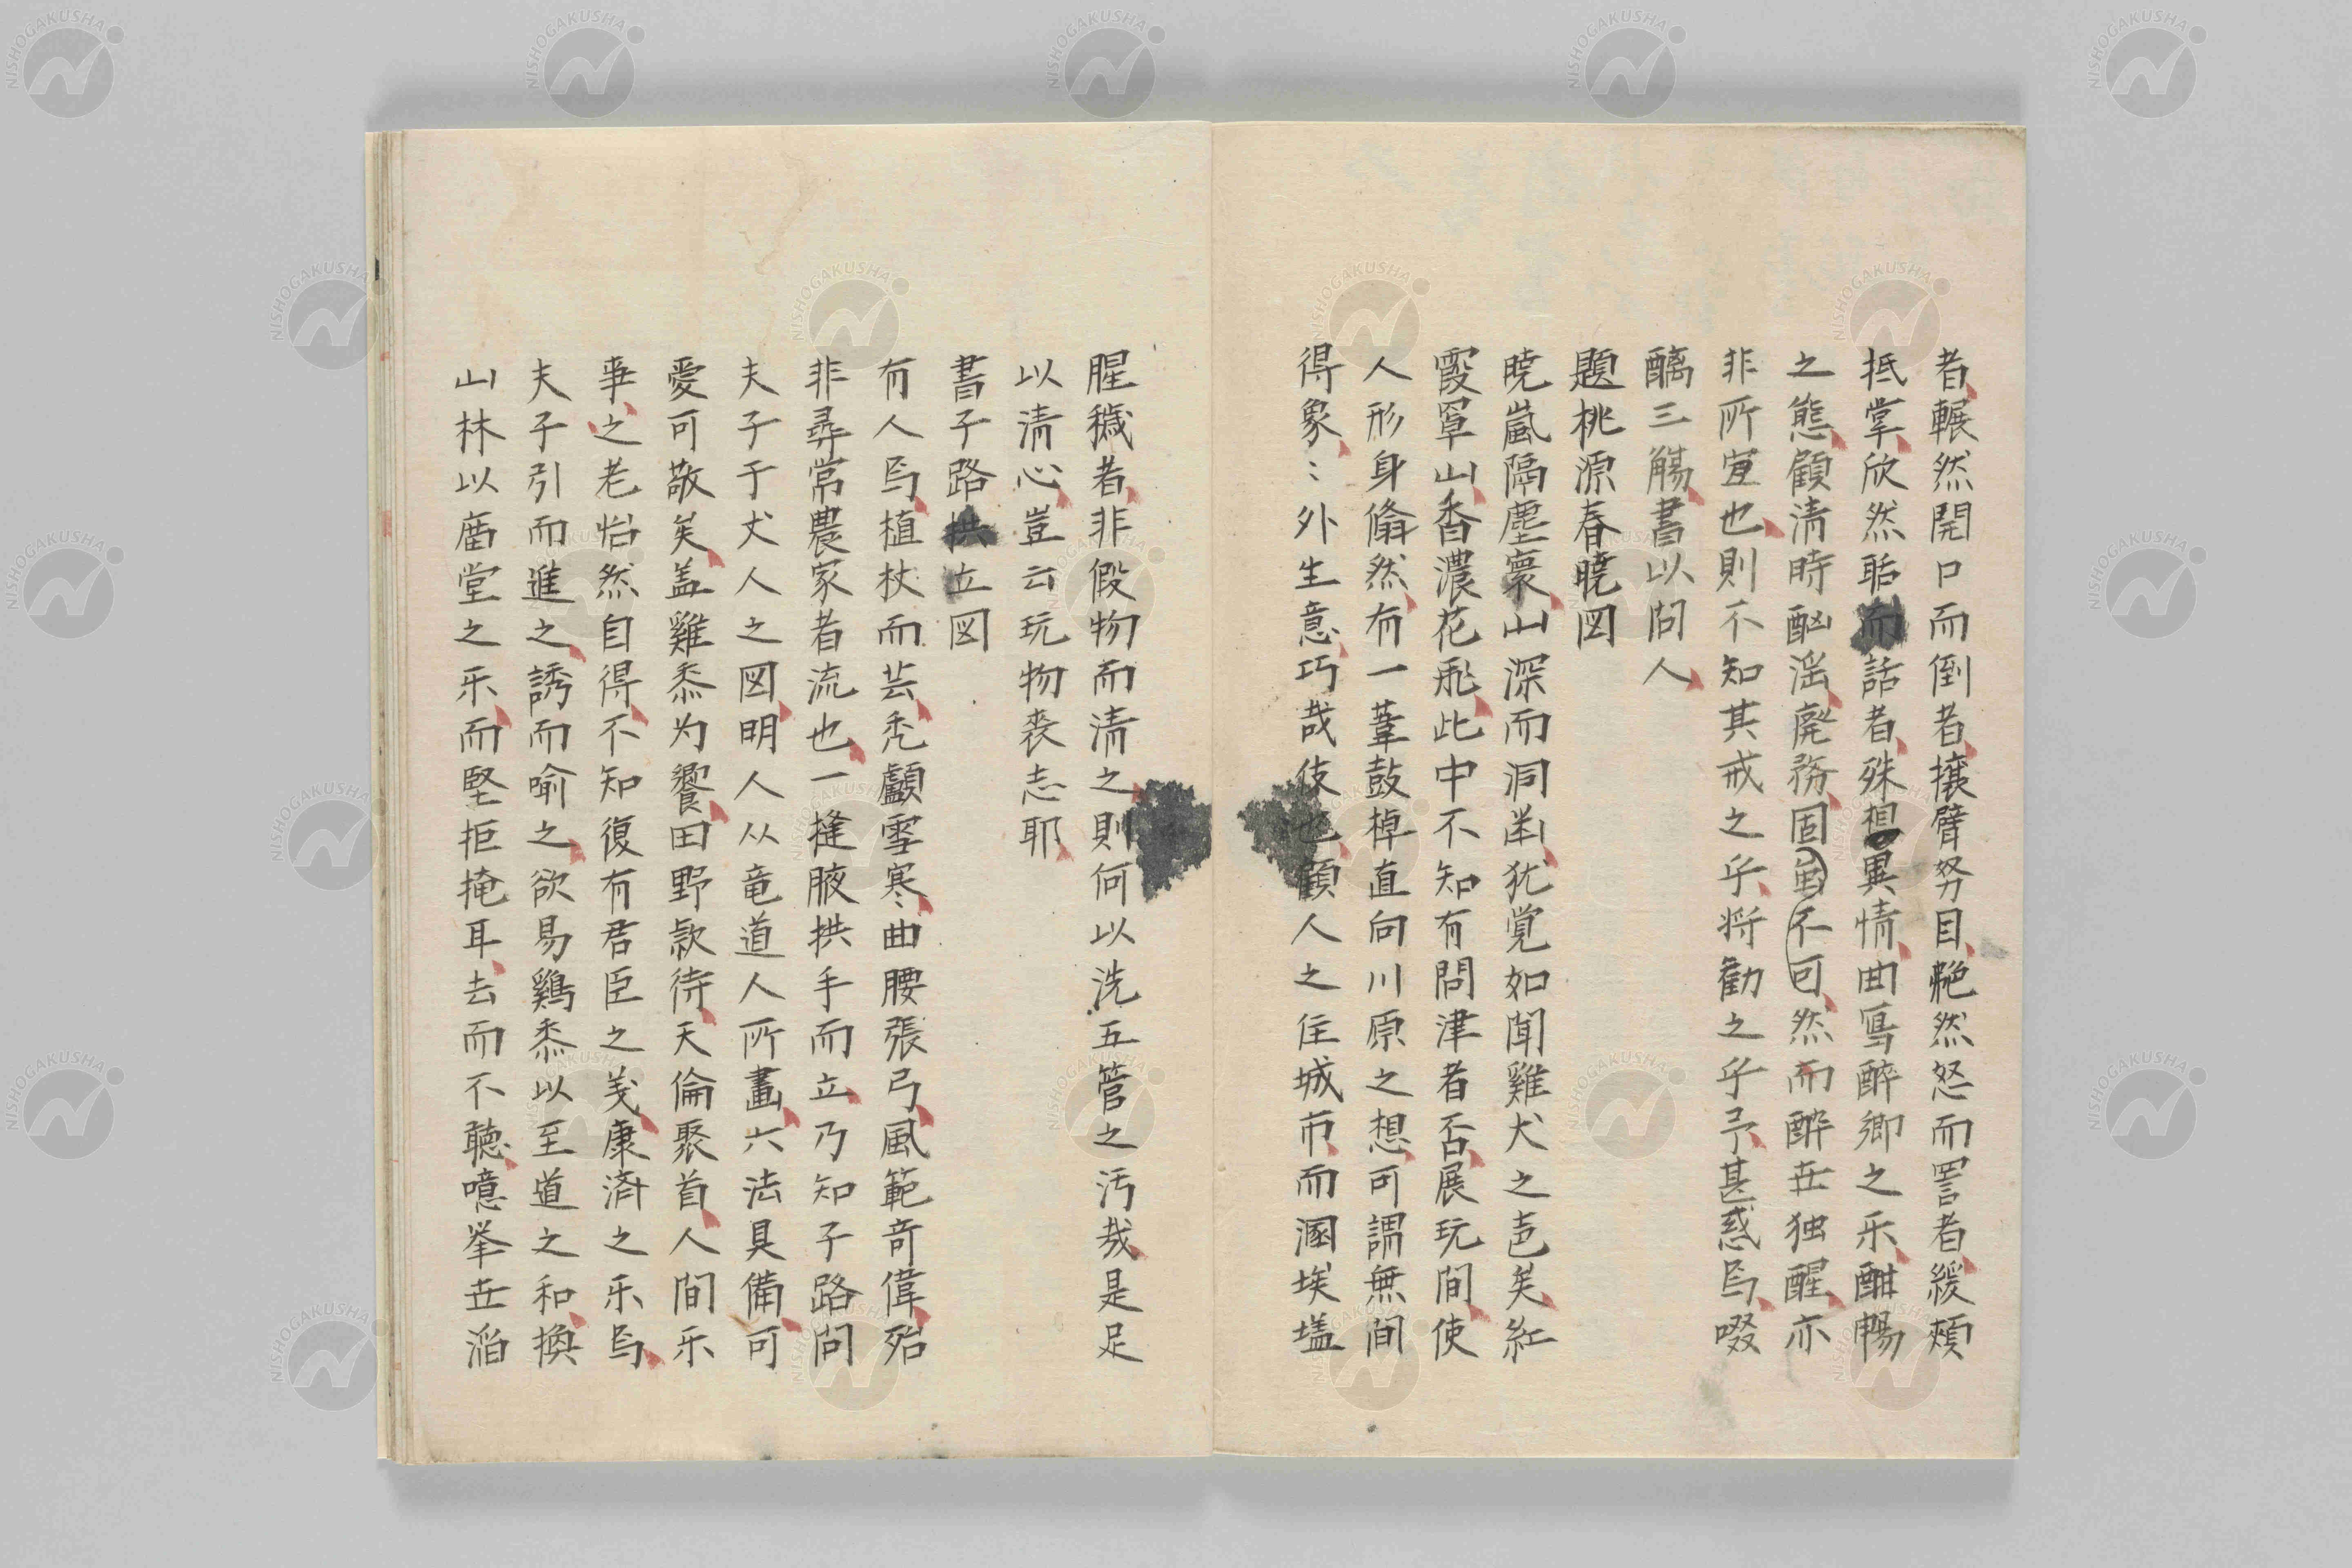 者輾然開口而倒者攘臂努目艴然怒而詈者緩頬
抵掌欣然聒而話者殊想異情曲寫醉郷之乐酣暢
之態顧清時酗滛廃務固虽不可然而醉世独醒亦
非所宜也則不知其戒之乎将勸之乎予甚惑焉啜
醨三觴書以問人
題桃源春曉図
曉嵐隔塵寰山深而洞幽犹覚如聞雞犬之邑矣紅
霞罩山香濃花飛此中不知有問津者否展玩間使
人形身翛然有一葦鼓棹直向川原之想可謂無間
得象〻外生意巧哉伎也顧人之住城市而溷埃壒
腥穢者非假物而清之則何以洗五管之汚哉是足
以清心豈云玩物喪志耶
書子路拱立図
有人焉植杖而芸禿顱雪寒曲腰張弓風範奇偉殆
非尋常農家者流也一縫腋拱手而立乃知子路問
夫子于丈人之図明人从竜道人所畫六法具備可
愛可敬矣盖雞黍为饗田野欵待天倫聚首人間乐
事之老怡然自得不知復有君臣之義康済之乐焉
夫子引而進之誘而喻之欲易鷄黍以至道之和換
山林以廟堂之乐而堅拒掩耳去而不聴噫举世滔
NISHOGAKUSHA